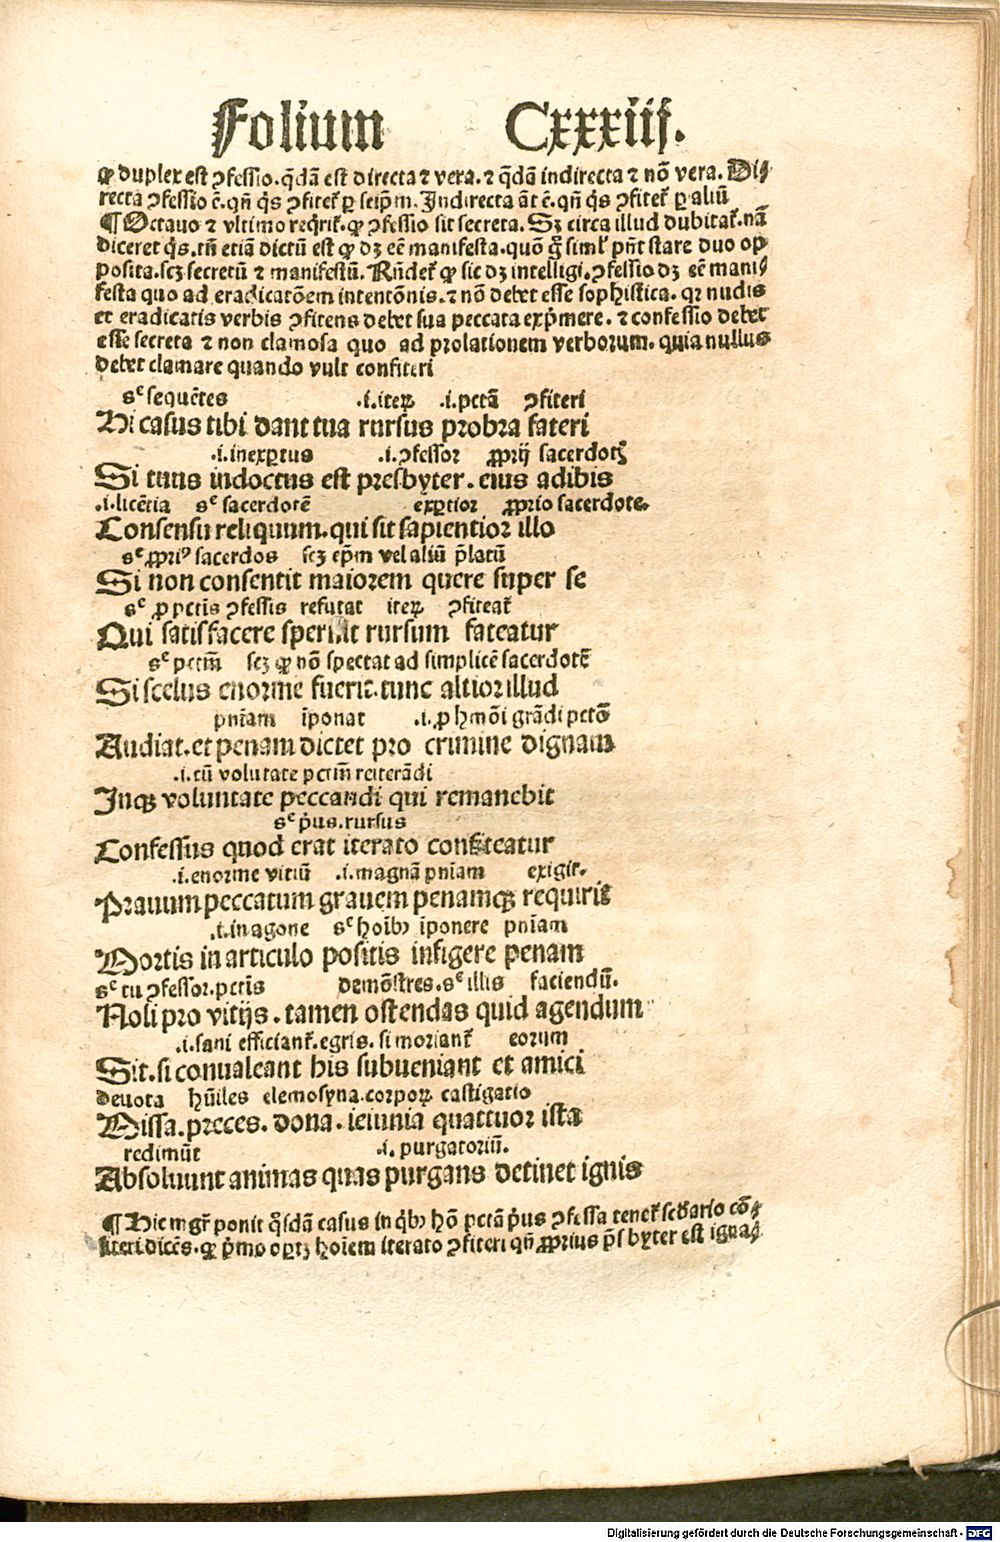 Folium Cxxxiij.
ꝙ duplex est ꝯfessio. q̄dā est directa ⁊ vera. ⁊ q̄dā indirecta ⁊ nō vera. Di⸗
recta ꝯfessio ē. qn̄ q̇s ꝯfitet̉ ꝑ seip̄m. Indirecta āt ē. qn̄ q̇s ꝯfitet̉ ꝑ aliū
¶ Octauo ⁊ vltimo req̇rit̉. ꝙ ꝯfessio sit secreta. Sꝫ circa illud dubitat̉. nā
diceret q̇s. tn̄ etiā dictū est ꝙ dꝫ eē manifesta. quō g̊ siml̉ pn̄t stare duo op
posita. scꝫ secretū ⁊ manifestū. Rn̄det̉ ꝙ sic dꝫ intelligi. ꝯfessio dꝫ eē mani⸗
festa quo ad eradicatōem intentōnis. ⁊ nō debet esse sophistica. qꝛ nudis
et eradicatis verbis ꝯfitens debet sua peccata exp̄mere. ⁊ confessio debet
esse secreta ⁊ non clamosa quo ad prolationem verborum. quia nullus
debet clamare quando vult confiteri
sᶜ sequētes .i. iteꝝ .i. pctā ꝯfiteri
Hi casus tibi dant tua rursus probra fateri
.i. inexꝑtus .i. ꝯfessor ꝓprij sacerdotꝭ
Si tuus indoctus est presbyter. eius adibis
.i. licētia sᶜ sacerdotē exꝑtior ꝓprio sacerdote.
Consensu reliquum. qui sit sapientior illo
sᶜ ꝓpriꝰ sacerdos scꝫ ep̄m vel aliū p̄latū
Si non consentit maiorem quere super se
sᶜ ꝓ pctis ꝯfessis refutat iteꝝ ꝯfiteat̉
Qui satisfacere spernit rursum fateatur
sᶜ pctm̄ scꝫ ꝙ nō spectat ad simplicē sacerdotē
Si scelus enorme fuerit. tunc altior illud
pn̄iam īponat .i. ꝓ hmōi grādi pctō
Audiat. et penam dictet pro crimine dignam
.i. cū volūtate pctm̄ reiterādi
Inqꝫ voluntate peccandi qui remanebit
sᶜ p̄us. rursus
Confessus quod erat iterato confiteatur
.i. enorme vitiū .i. magnā pn̄iam exigit.
Prauum peccatum grauem penamqꝫ requirit
.i. in agone sᶜ hoībꝰ īponere pn̄iam
Mortis in articulo positis infigere penam
sᶜ tu ꝯfessor. pctis demōstres. sᶜ illis faciendū.
Noli pro vitijs. tamen ostendas quid agendum
.i. sani efficiant̉. egris. si moriant̉ eorum
Sit. si conualeant his subueniant et amici
deuota hūiles elemosyna. corpoꝝ castigatio
Missa. preces. dona. ieiunia quattuor ista
redimūt .i. purgatoriū.
Absoluunt animas quas purgans detinet ignis
¶ Hic mgr̄ ponit q̄sdā casus in q̇bꝰ hō pctā p̄us ꝯfessa tenet̉ scd̄ario cō⸗
fiteri dicēs. ꝙ p̄mo oꝑtꝫ hoīem iterato ꝯfiteri qn̄ ꝓprius p̄sbyter est igna⸗
Digitalisierung gefördert durch die Deutsche Forschungsgemeinschaft - DFG